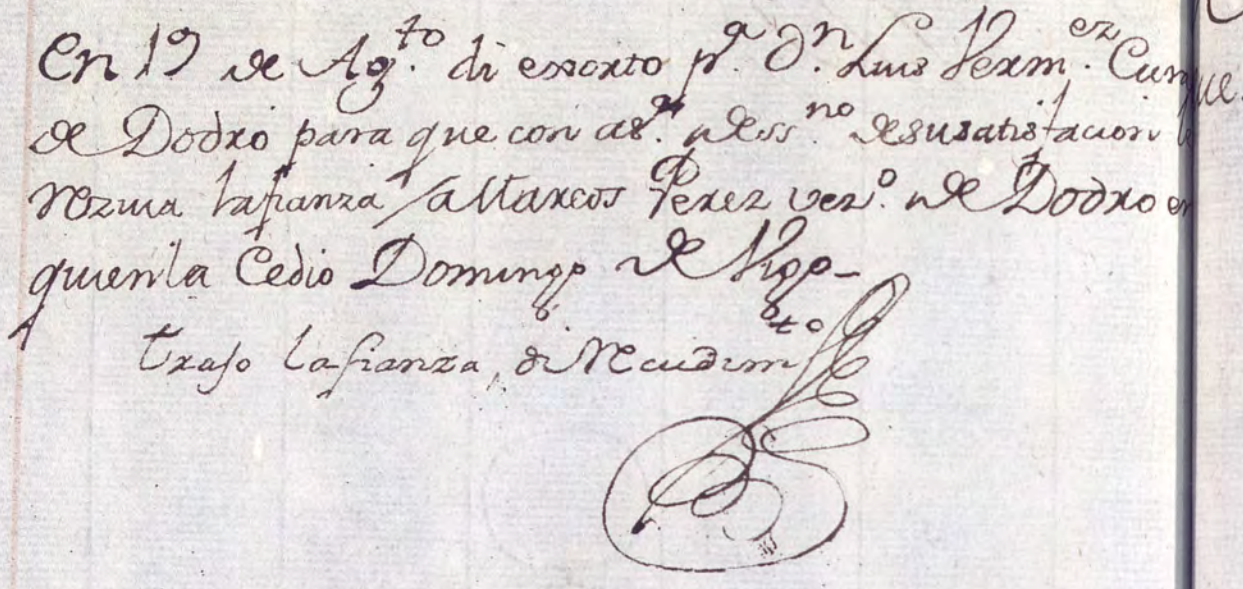 En 19 de Ag.to di exxorto p.a D.n Luis Verm.ez Cura
de Dodro para que con as.a de ss.no de su satisfacion
reziva la fianza a Marcos Perez vez.o de Dodro en
quien la Cedio Domingo de Vigo-
trajo la fianza, di Recudim.to